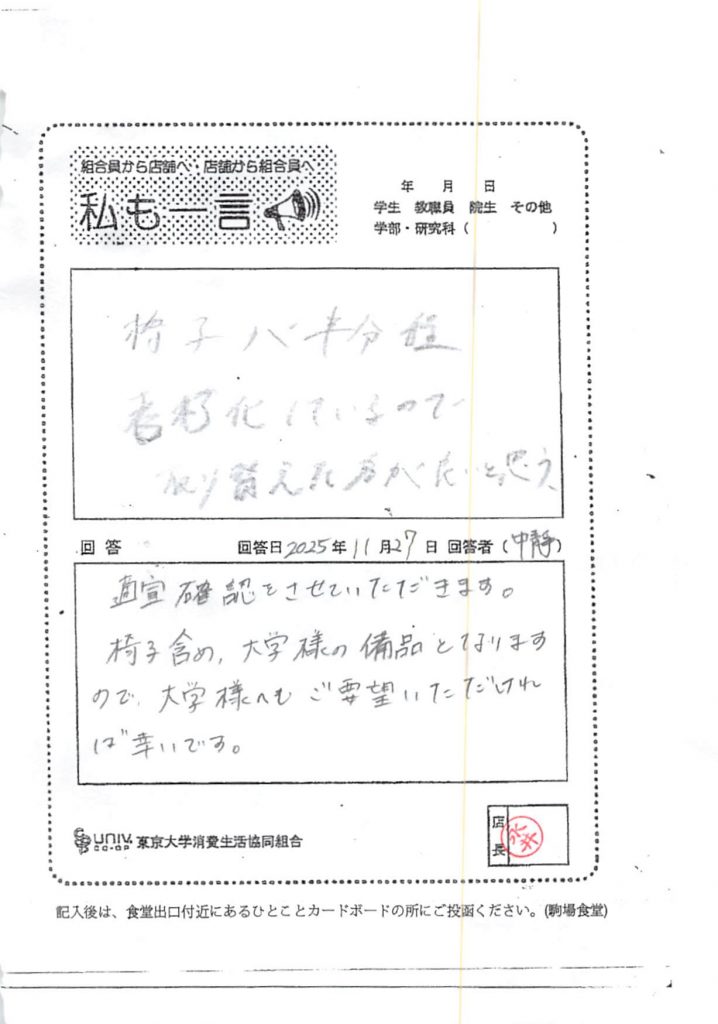 組合員から店舗へ・店舗から組合員へ
私も一言
年 月 日
学生 教職員 院生 その他
学部・研究科 ( )
椅子が半分程
老朽化しているので
取り替えた方が良いと思う
回答 回答日 2025年 11月27日 回答者 (中静)
適宜確認をさせていただきます。
椅子含め、大学様の備品となります
ので、大学様へもご要望いただけれ
ば幸いです。
店長
永井
UNIV. CO-OP 東京大学消費生活協同組合
記入後は、食堂出口付近にあるひとことカードボードの所にご投函ください。(駒場食堂)